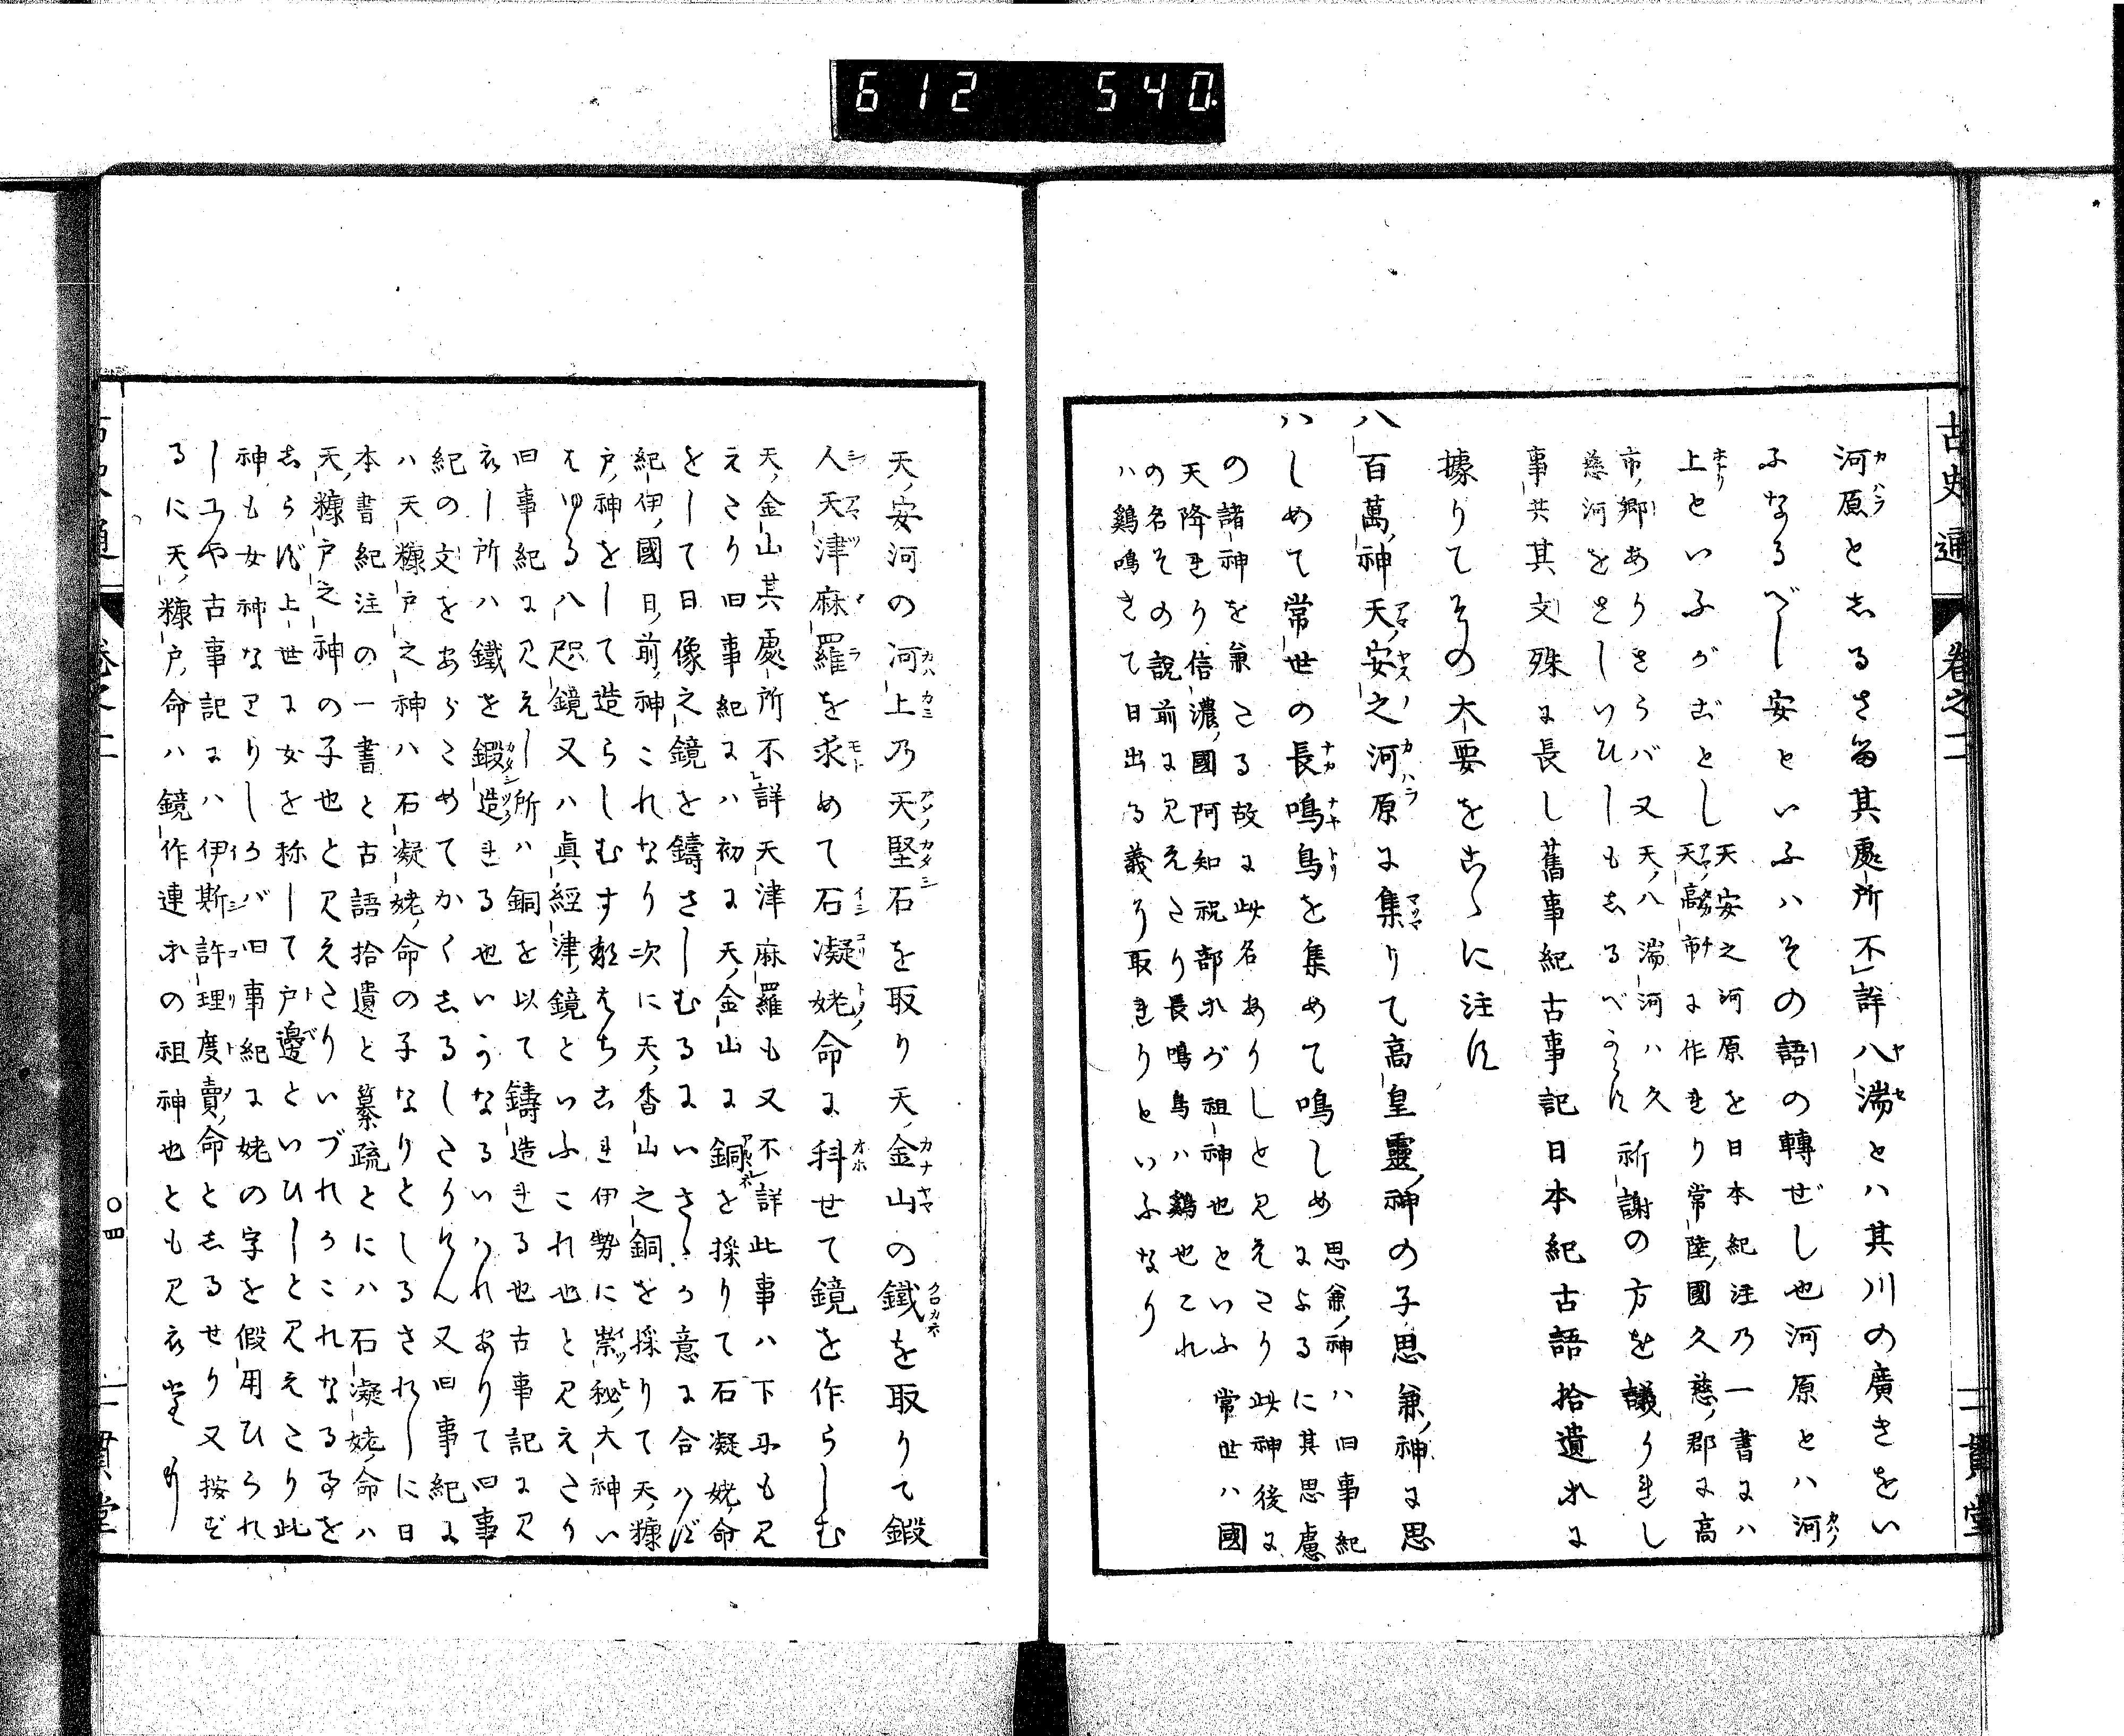 612 540
古史通 卷之二 一貫堂
河原としるさ畄其處所不詳八湍とハ其川の廣きをい
ふなるべし安といふハその語の轉ぜし也河原とハ河
上といふがごとし天安之河原を日本紀注乃一書にハ
天高市に作れり常陸國久慈郡に高
市郷ありさらバ又天八湍河ハ久
慈河をさしいひしもしるべからす祈謝の方を議りれし
事共其文殊に長し舊事紀古事記日本紀古語拾遺ホに
據りてその大要をこゝに注す
八百萬神天安之河原に集りて高皇靈神の子思兼神に思
ハしめて常世の長鳴鳥を集めて鳴しめ思兼神ハ旧事紀
によるに其思慮
の諸神を兼さる故に此名ありしと見えさり此神後に
天降れり信濃國阿知祝部ホが祖神也といふ常世ハ國
の名その説前に見えさり長鳴鳥ハ鷄也これ
ハ鷄鳴きて日出る義を取れりといふなり
天安河の河上乃天堅石を取り天金山の鐵を取りて鍛
人天津麻羅を求めて石凝姥命に科せて鏡を作らしむ
天金山其處所不詳天津麻羅も又不詳此事ハ下にも見
えさり旧事紀にハ初に天金山に銅を採りて石凝姥命
をして日像之鏡を鑄さしむるにいさゝか意に合ハず
紀伊國日前神これなり次に天香山之銅を採りて天糠
戸神をして造らしむす那はちこれ伊勢に崇秘大神い
はゆる八咫鏡又ハ眞經津鏡といふこれ也と見えさり
旧事紀に見えし所ハ銅を以て鑄造れる也古事記に見
衣し所ハ鐵を鍛造れる也いかなるいハれありて旧事
紀の文をあらこめてかくしるしさりけん又旧事紀に
ハ天糠戸之神ハ石凝姥命の子なりとしるされしに日
本書紀注の一書と古語拾遺と纂疏とにハ石凝姥命ハ
天糠戸之神の子也と見えさりいづれかこれなる事を
しらず上世に女を称して戸邊といひしと見えこり此
神も女神なりしかバ旧事紀に姥の字を假用ひられ
しユや古事記にハ伊斯許理度賣命としるせり又按ず
るに天糠戸命ハ鏡作連ホの祖神也とも見衣堂り
〇四
一貫堂